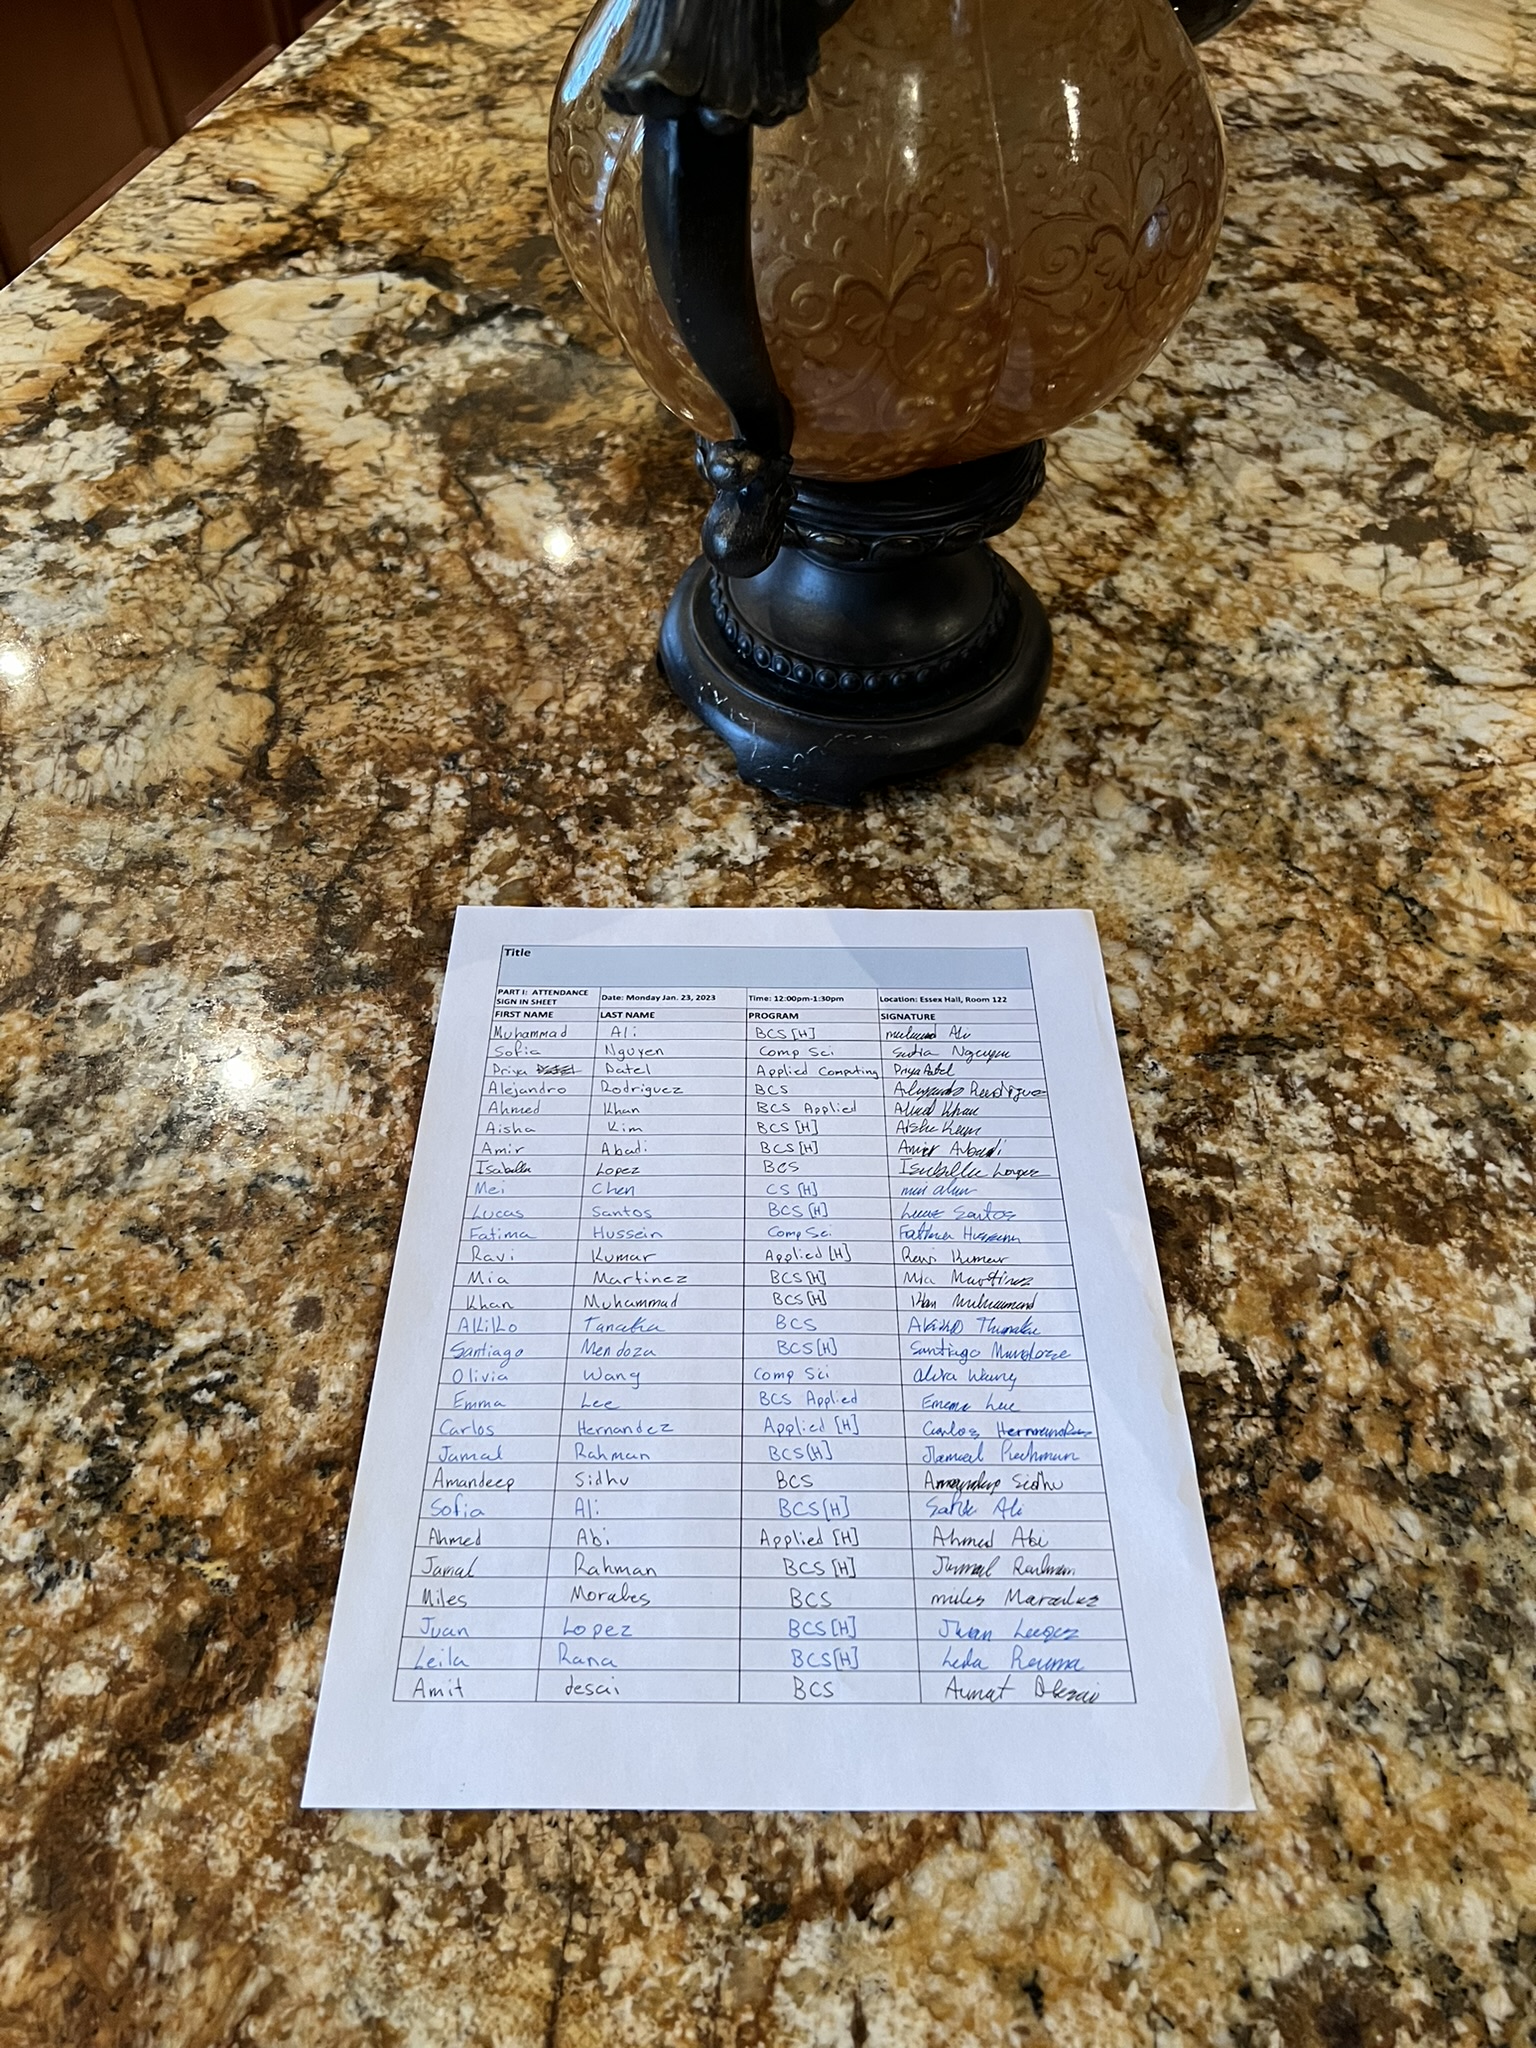 Title
PART I: ATTENDANCE SIGN IN SHEET Date: Monday Jan. 23, 2023 Time: 12:00pm-1:30pm Location: Essex Hall, Room 122
FIRST NAME LAST NAME PROGRAM SIGNATURE
Muhammad Ali BCS [H] Ali
Sofia Nguyen Comp Sci Sofia Nguyen
Priya Patel Applied Computing Priya Patel
Alejandro Rodriguez BCS Alejandro Rodriguez
Ahmed Khan BCS Applied Ahmed Khan
Aisha Kim BCS [H] Aisha Kim
Amir Abadi BCS [H] Amir Abadi
Isabella Lopez BCS Isabella Lopez
Mei Chen CS [H] mei chen
Lucas Santos BCS [H] Lucas Santos
Fatima Hussein Comp Sci Fatima Hussein
Ravi Kumar Applied [H] Ravi Kumar
Mia Martinez BCS [H] Mia Martinez
Khan Muhammad BCS [H] Khan Muhammad
Akiko Tanaka BCS Akiko Tanaka
Santiago Mendoza BCS [H] Santiago Mendoza
Olivia Wang Comp Sci Olivia Wang
Emma Lee BCS Applied Emma Lee
Carlos Hernandez Applied [H] Carlos Hernandez
Jamal Rahman BCS [H] Jamal Rahman
Amandeep Sidhu BCS Amandeep Sidhu
Sofia Ali BCS [H] Ali
Ahmed Abi Applied [H] Ahmed Abi
Jamal Rahman BCS [H] Jamal Rahman
Miles Morales BCS miles Morales
Juan Lopez BCS [H] Juan Lopez
Leila Rana BCS [H] Leila Rana
Amit desai BCS Amit Desai